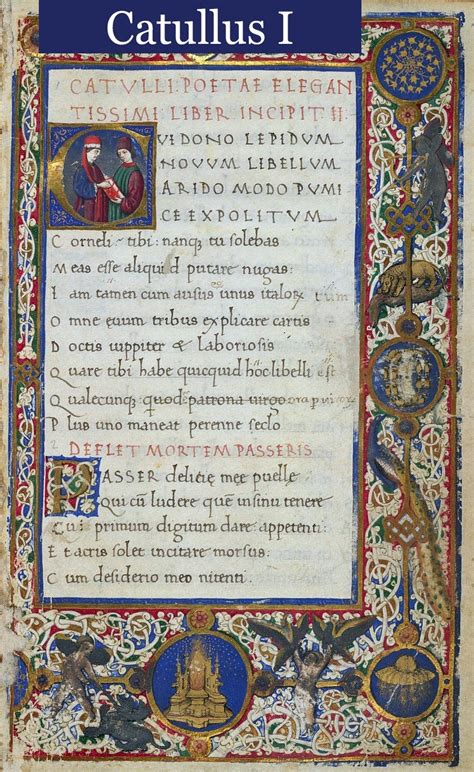 Catullus I
CATVLLI·POETAE ELEGAN
TISSIMI·LIBER INCIPIT·II·
QVI DONO LEPIDVM
NOVVM LIBELLVM
ARIDO MODO PVMI
CE EXPOLITVM
Corneli tibi: nanq tu solebas
Meas esse aliquid putare nugas:
Iam tamen cum ausus unus italoꝝ tum
Omne ęuum tribus explicare cartis
Doctis uippiter & laboriosis
Quare tibi habe quicquid hoc libelli est
Qualecunq quod patrona uirgo
Plus uno maneat perenne sęclo.
DEFLET MORTEM PASSERIS
PASSER delicię meę puellę
Qui cū ludere quē insinu tenere
Cui primum digitum dare appetenti
Et acris solet incitare morsus:
Cum desiderio meo nitenti.